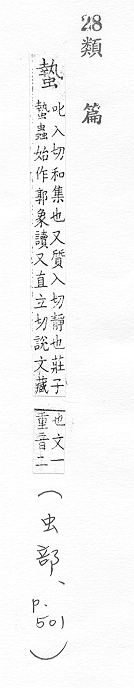 28
類篇
蟄
叱入切和集也又質入切靜也莊子
蟄蟲始作郭象讀又直立切說文藏
也文一
重音二
(虫部、p.501)